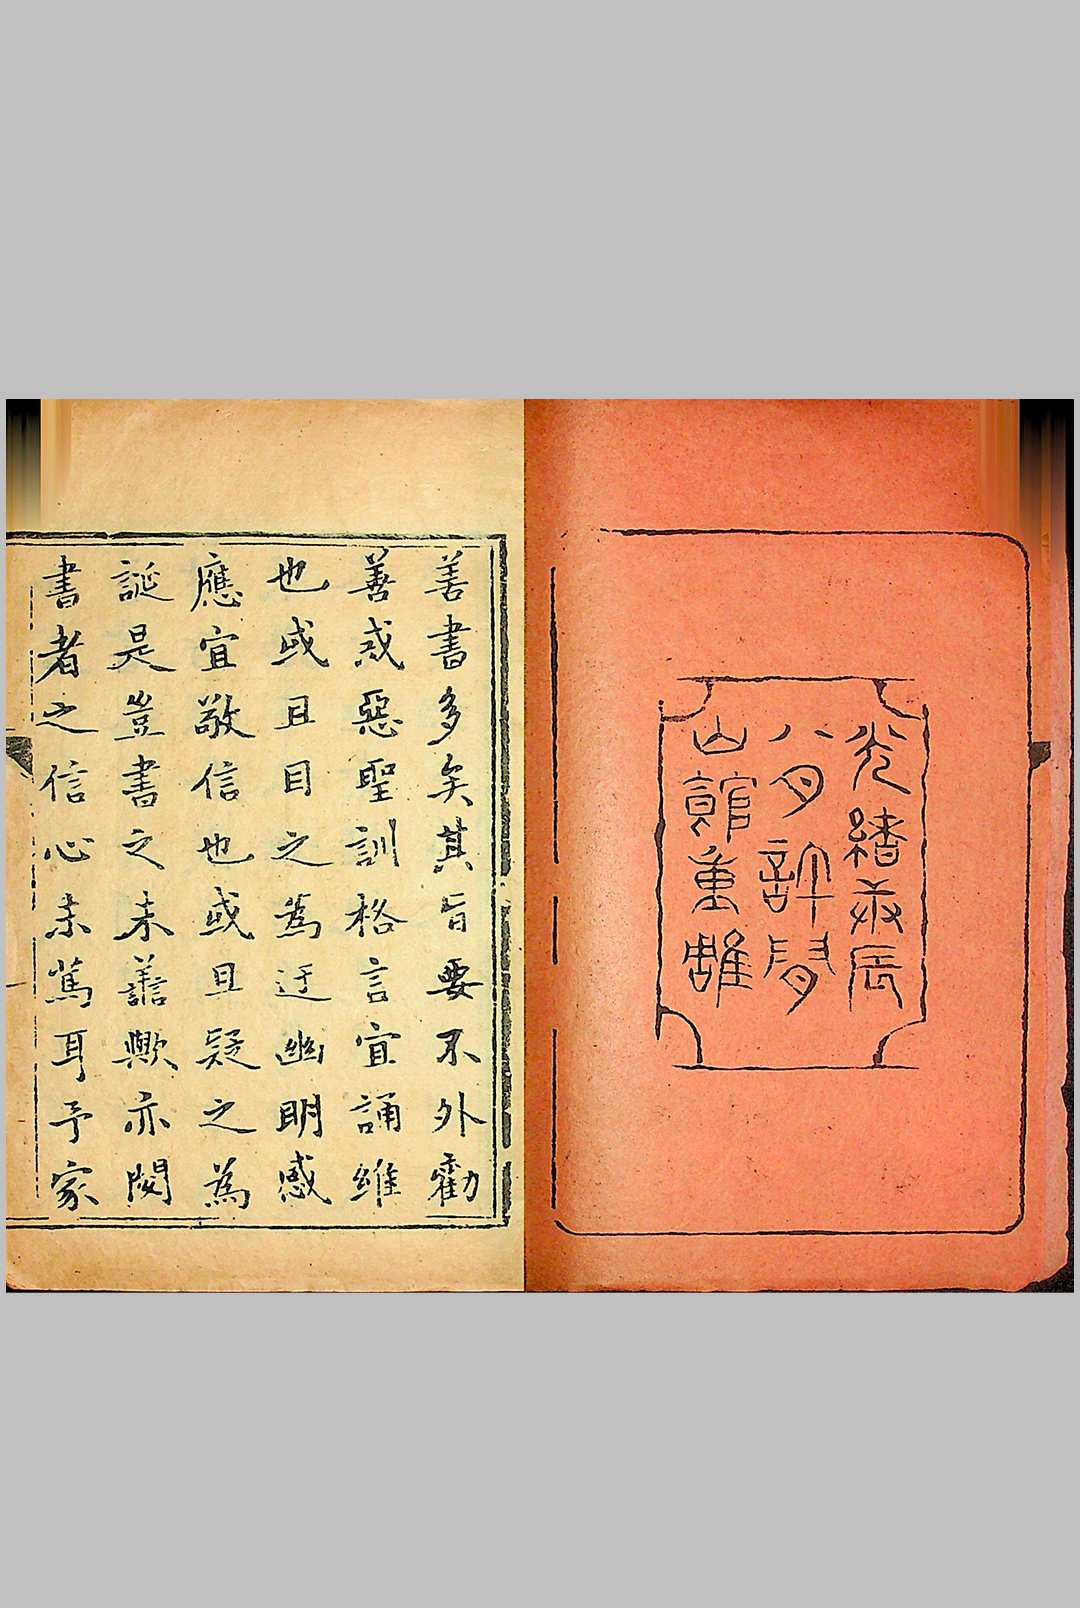 光緒庚辰
八月許
山館重雕
善書多矣其旨要不外勸
善戒惡聖訓格言宜誦維
也或且目之為迂幽明感
應宜敬信也或且疑之為
誕是豈書之未譱歟亦閱
書者之信心未篤耳予家